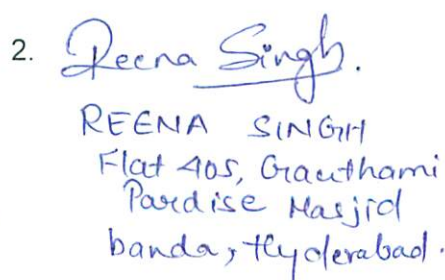 2. Reena Singh.
REENA SINGH
Flat 405, Grauthami
Pardise Masjid
banda, Hyderabad.